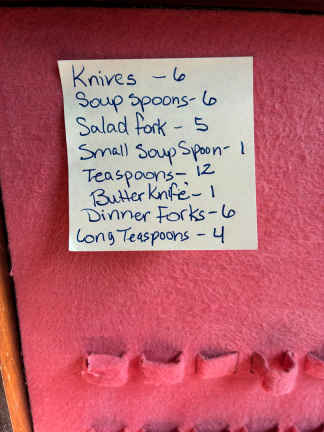 Knives - 6
Soup Spoons - 6
Salad fork - 5
Small Soup Spoon - 1
Teaspoons - 12
Butter Knife - 1
Dinner Forks - 6
Long Teaspoons - 4